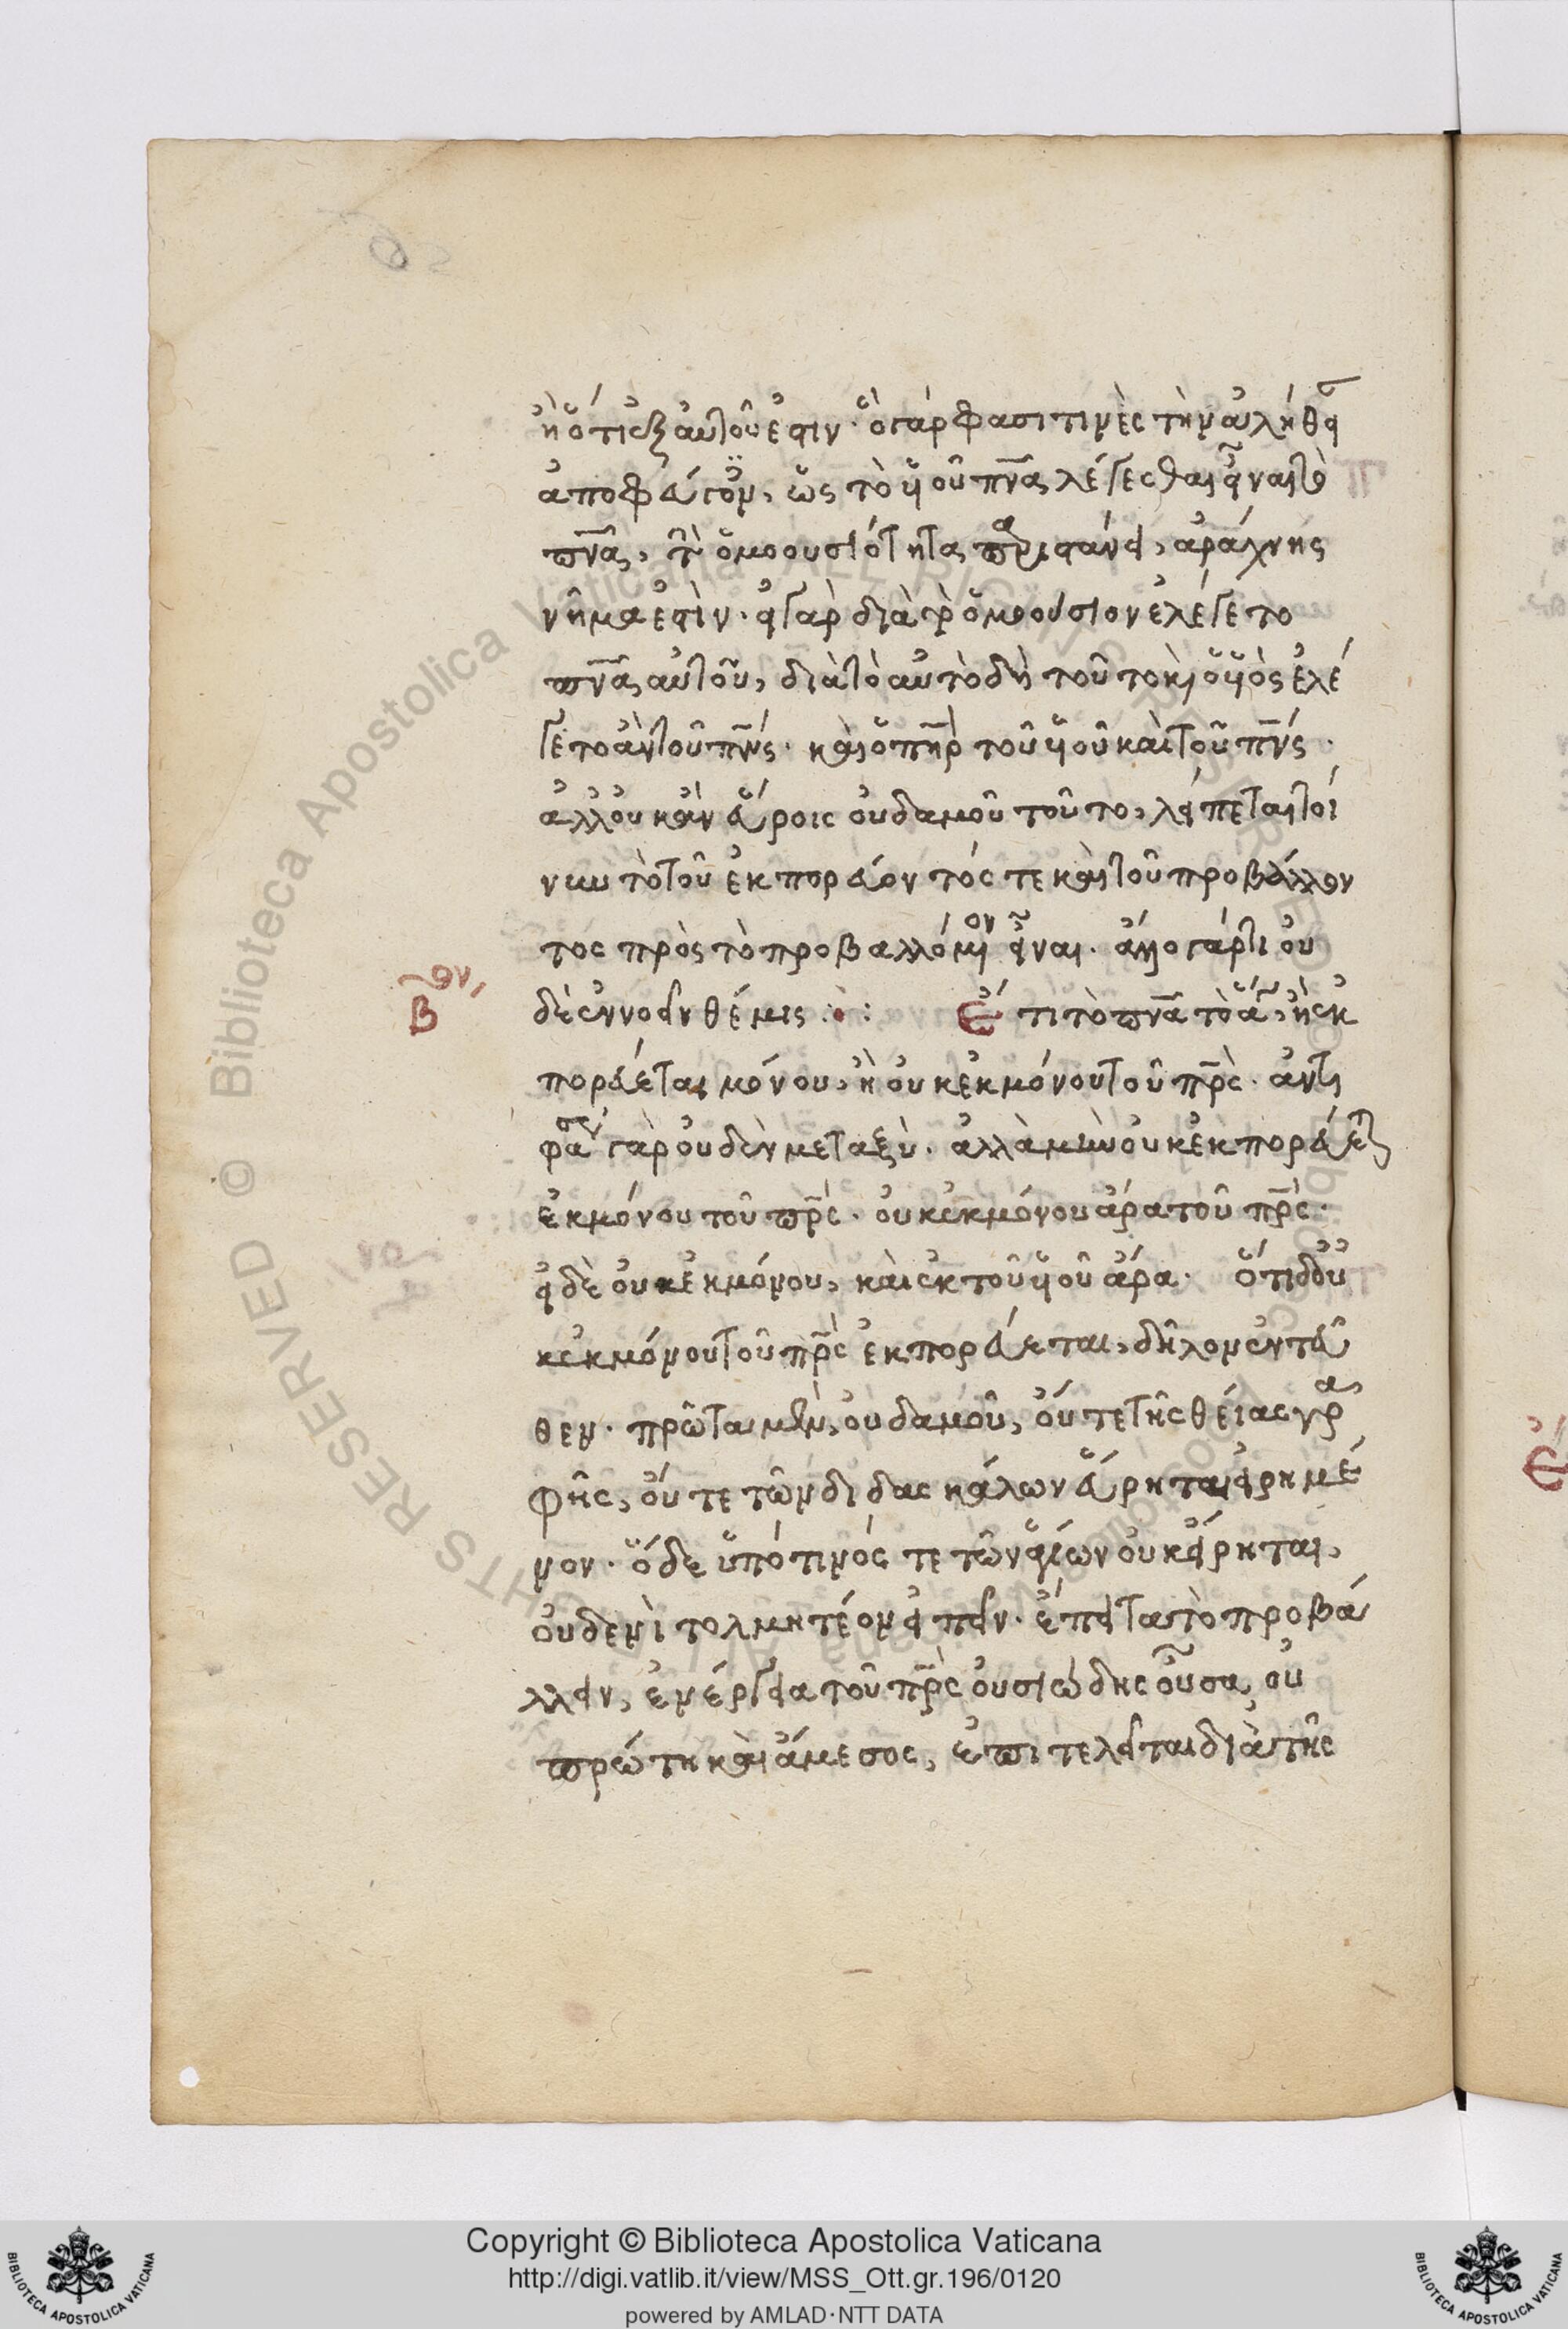 ἢ ὅτι ἐξ αὐτοῦ ἐστιν· ὃ γάρ φασι τινὲς τὴν ἀλήθει
ἀποφεύγον, ὡς τὸ υἱοῦ πνᾶ λέγεσθαι εἶναι τὸ
πνᾶ, τὴν ὁμοουσιότητα παριστάνει, ἀράχνης
νῆμα ἐστίν· εἰ γὰρ διὰ τὸ ὁμοούσιον ἐλέγετο
πνᾶ αὐτοῦ, διὰ τὸ αὐτὸ δὴ τοῦτο καὶ ὁ υἱὸς ἐλέ
γετο ἂν τοῦ πνς· καὶ ὁ πηρ τοῦ υἱοῦ καὶ τοῦ πνς·
ἀλλ' οὐκ ἂν εὕροις οὐδαμοῦ τοῦτο, λείπεται τοί
νυν τὸ τοῦ ἐκπορεύοντός τε καὶ τοῦ προβάλλον
τος πρὸς τὸ προβαλλόμενον εἶναι. ἄλλο γάρ τι οὐ
β ον
δὲ ἐννοεῖν θέμις : Ἔτι τὸ πνᾶ τὸ ἅ, ἢ ἐκ
πορεύεται μόνου, ἢ οὐκ ἐκ μόνου τοῦ πρς. ἀντι
φά γὰρ οὐδὲν μεταξύ. ἀλλὰ μὴν οὐκ ἐκπορεύεται
ἐκ μόνου τοῦ πρς· οὐκ ἐκ μόνου ἄρα τοῦ πρς.
εἰ δὲ οὐκ ἐκ μόνου, καὶ ἐκ τοῦ υἱοῦ ἄρα. ὅτι δ' οὐ
κ ἐκ μόνου τοῦ πρς ἐκπορεύεται, δῆλον ἐντεῦ
θεν. πρῶτα μὲν, οὐδαμοῦ, οὔτε τῆς θείας γρα
φῆς, οὔτε τῶν διδασκάλων εὕρηται εἰρημέ
νον. ὃ δὲ ὑπό τινός τε τῶν ἁγίων οὐκ εἴρηται,
οὐδενὶ τολμητέον εἰπεῖν. ἔπειτα τὸ προβά
λλειν, ἐνέργεια τοῦ πρς οὐσιώδης οὖσα, οὐ
πρώτη καὶ ἄμεσος, ἐπιτελεῖται διὰ τῆς
Copyright © Biblioteca Apostolica Vaticana
http://digi.vatlib.it/view/MSS_Ott.gr.196/0120
powered by AMLAD·NTT DATA